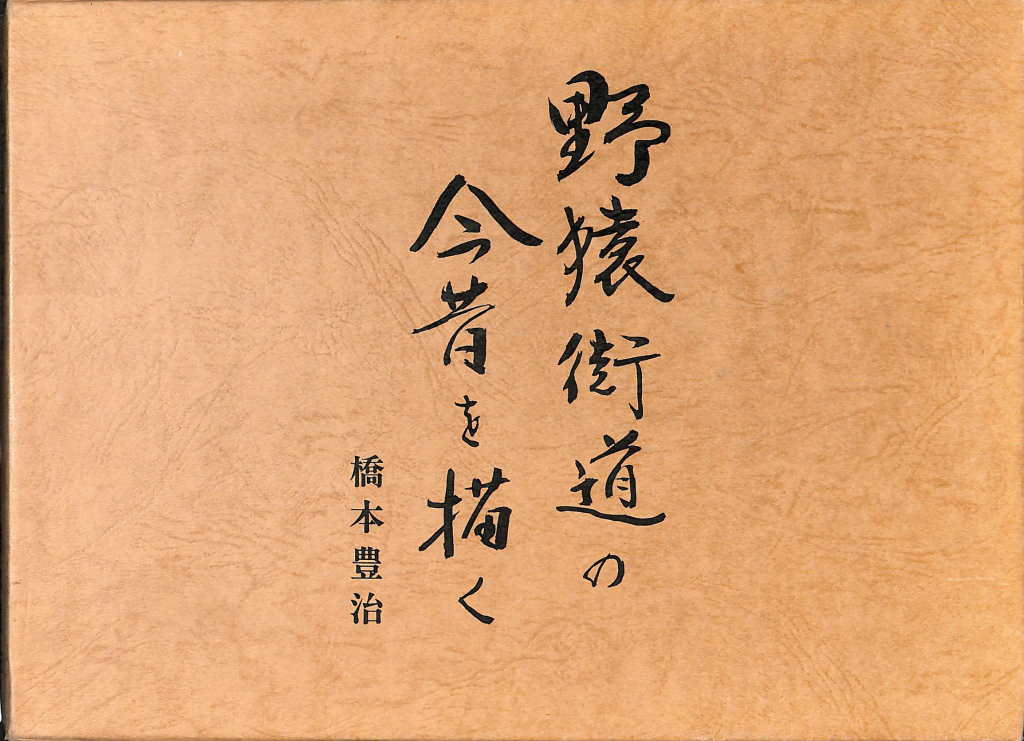 野猿街道の
今昔を描く
橋本豊治